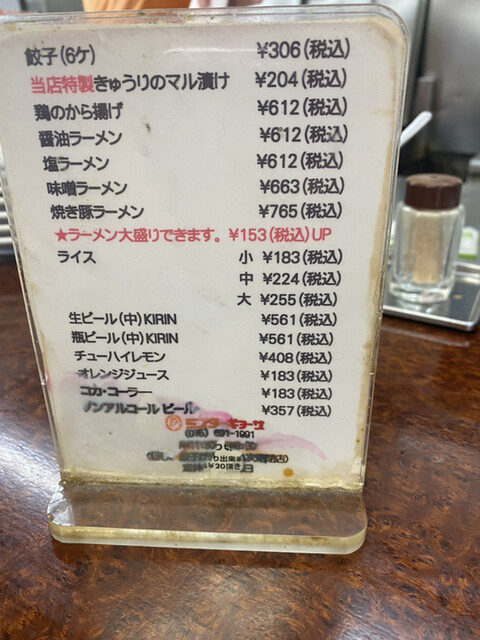 餃子(6ケ) ¥306(税込)
当店特製きゅうりのマル漬け ¥204(税込)
鶏のから揚げ ¥612(税込)
醤油ラーメン ¥612(税込)
塩ラーメン ¥612(税込)
味噌ラーメン ¥663(税込)
焼き豚ラーメン ¥765(税込)
★ラーメン大盛りできます。¥153(税込)UP
ライス 小 ¥183(税込)
中 ¥224(税込)
大 ¥255(税込)
生ビール(中)KIRIN ¥561(税込)
瓶ビール(中)KIRIN ¥561(税込)
チューハイレモン ¥408(税込)
オレンジジュース ¥183(税込)
コカ・コーラー ¥183(税込)
ノンアルコールビール ¥357(税込)
ミスターギョーザ
(075) 691-1991